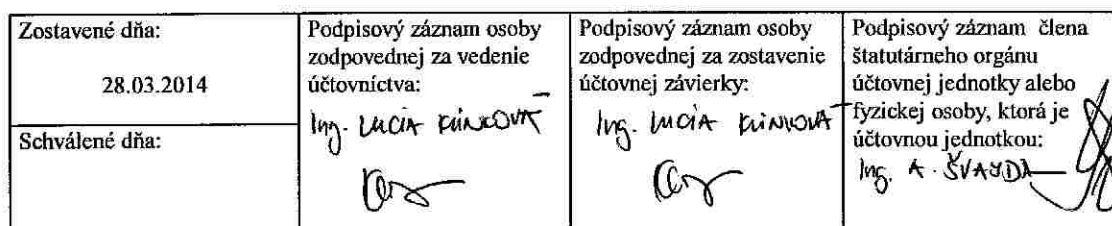 Zostavené dňa:
28.03.2014
Schválené dňa:
Podpisový záznam osoby
zodpovednej za vedenie
účtovníctva:
Ing. LUCIA
Podpisový záznam osoby
zodpovednej za zostavenie
účtovnej závierky:
Ing. LUCIA
Podpisový záznam člena
štatutárneho orgánu
účtovnej jednotky alebo
fyzickej osoby, ktorá je
účtovnou jednotkou:
Ing. A. ŠVAJDA